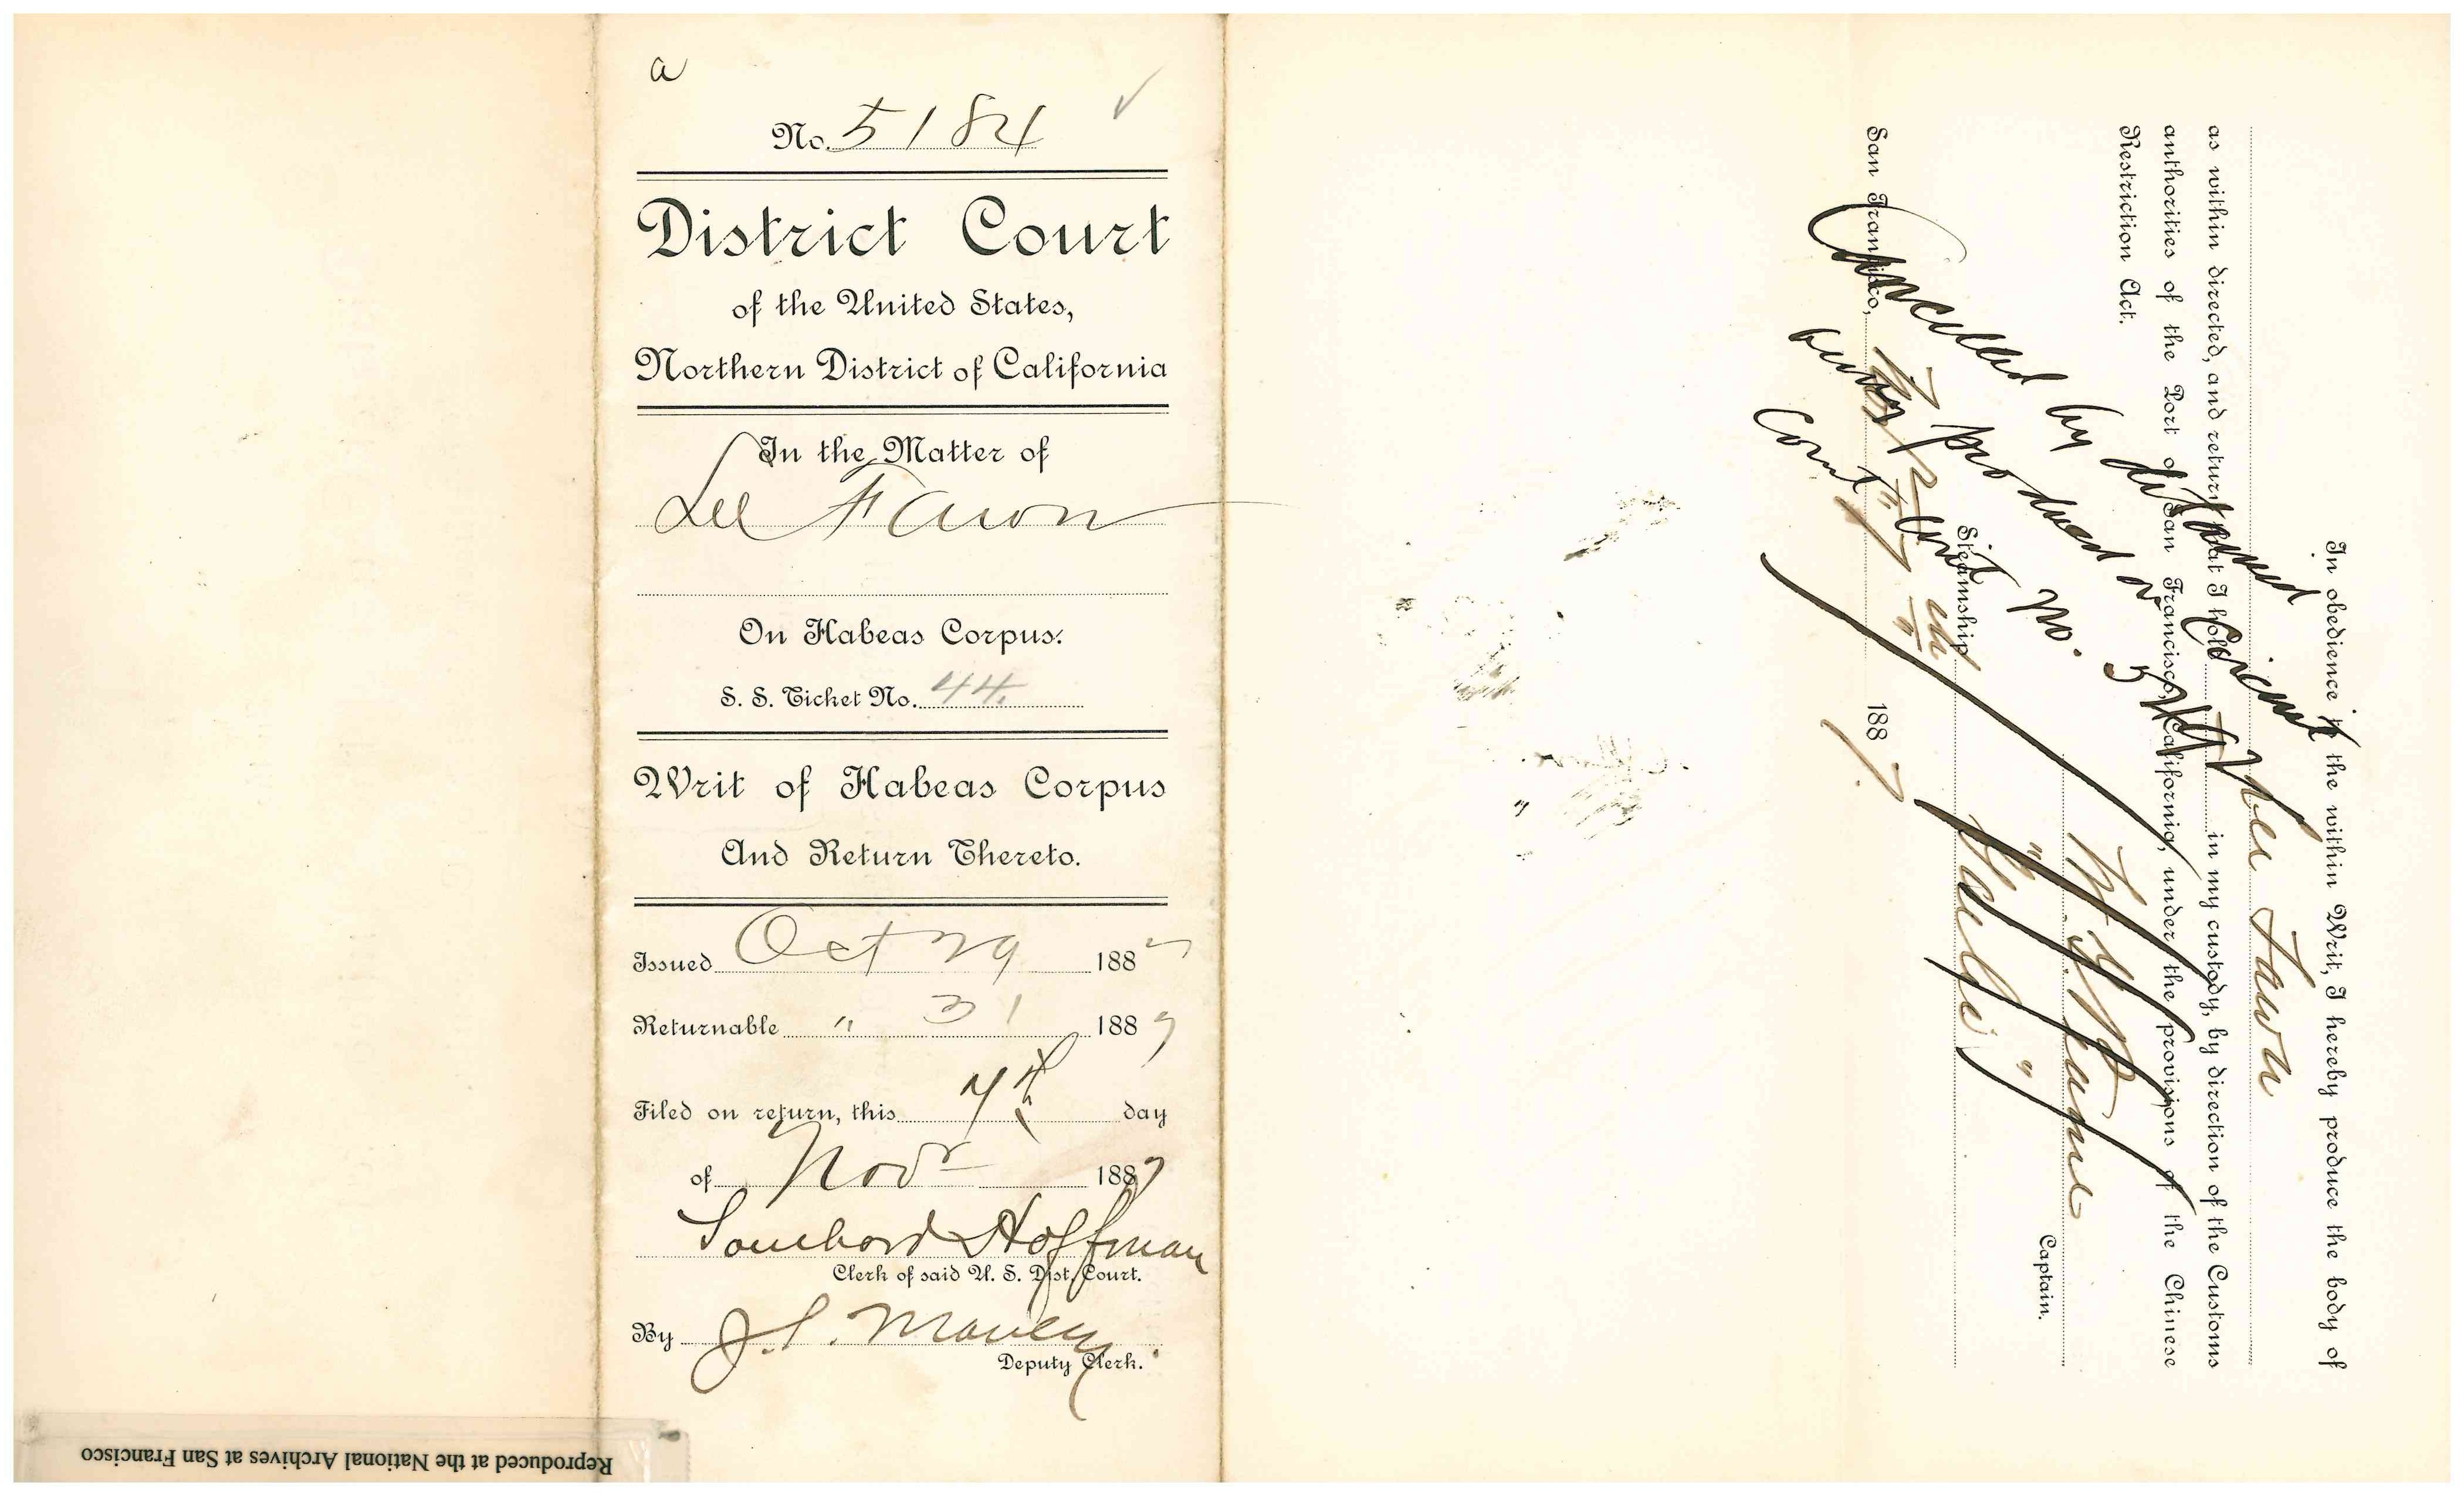 a
No. 5184
District Court
of the United States,
Northern District of California
In the Matter of
Lee Fawn
On Habeas Corpus.
S. S. Ticket No. 44.
Writ of Habeas Corpus
And Return Thereto.
Issued Oct 29 1887
Returnable " 31 1887
Filed on return, this 7th day
of Novr 1887
Southard Hoffman
Clerk of said U. S. Dist. Court.
By
Deputy Clerk.
In obedience to the within Writ, I hereby produce the body of
Lee Fawn
as within directed, and return that I hold in my custody, by direction of the Customs
authorities of the Port of San Francisco, California, under the provisions of the Chinese
Restriction Act.
Captain.
Steamship
San Francisco, 1887
Cancelled by
being produced in
Court No.
Reproduced at the National Archives at San Francisco